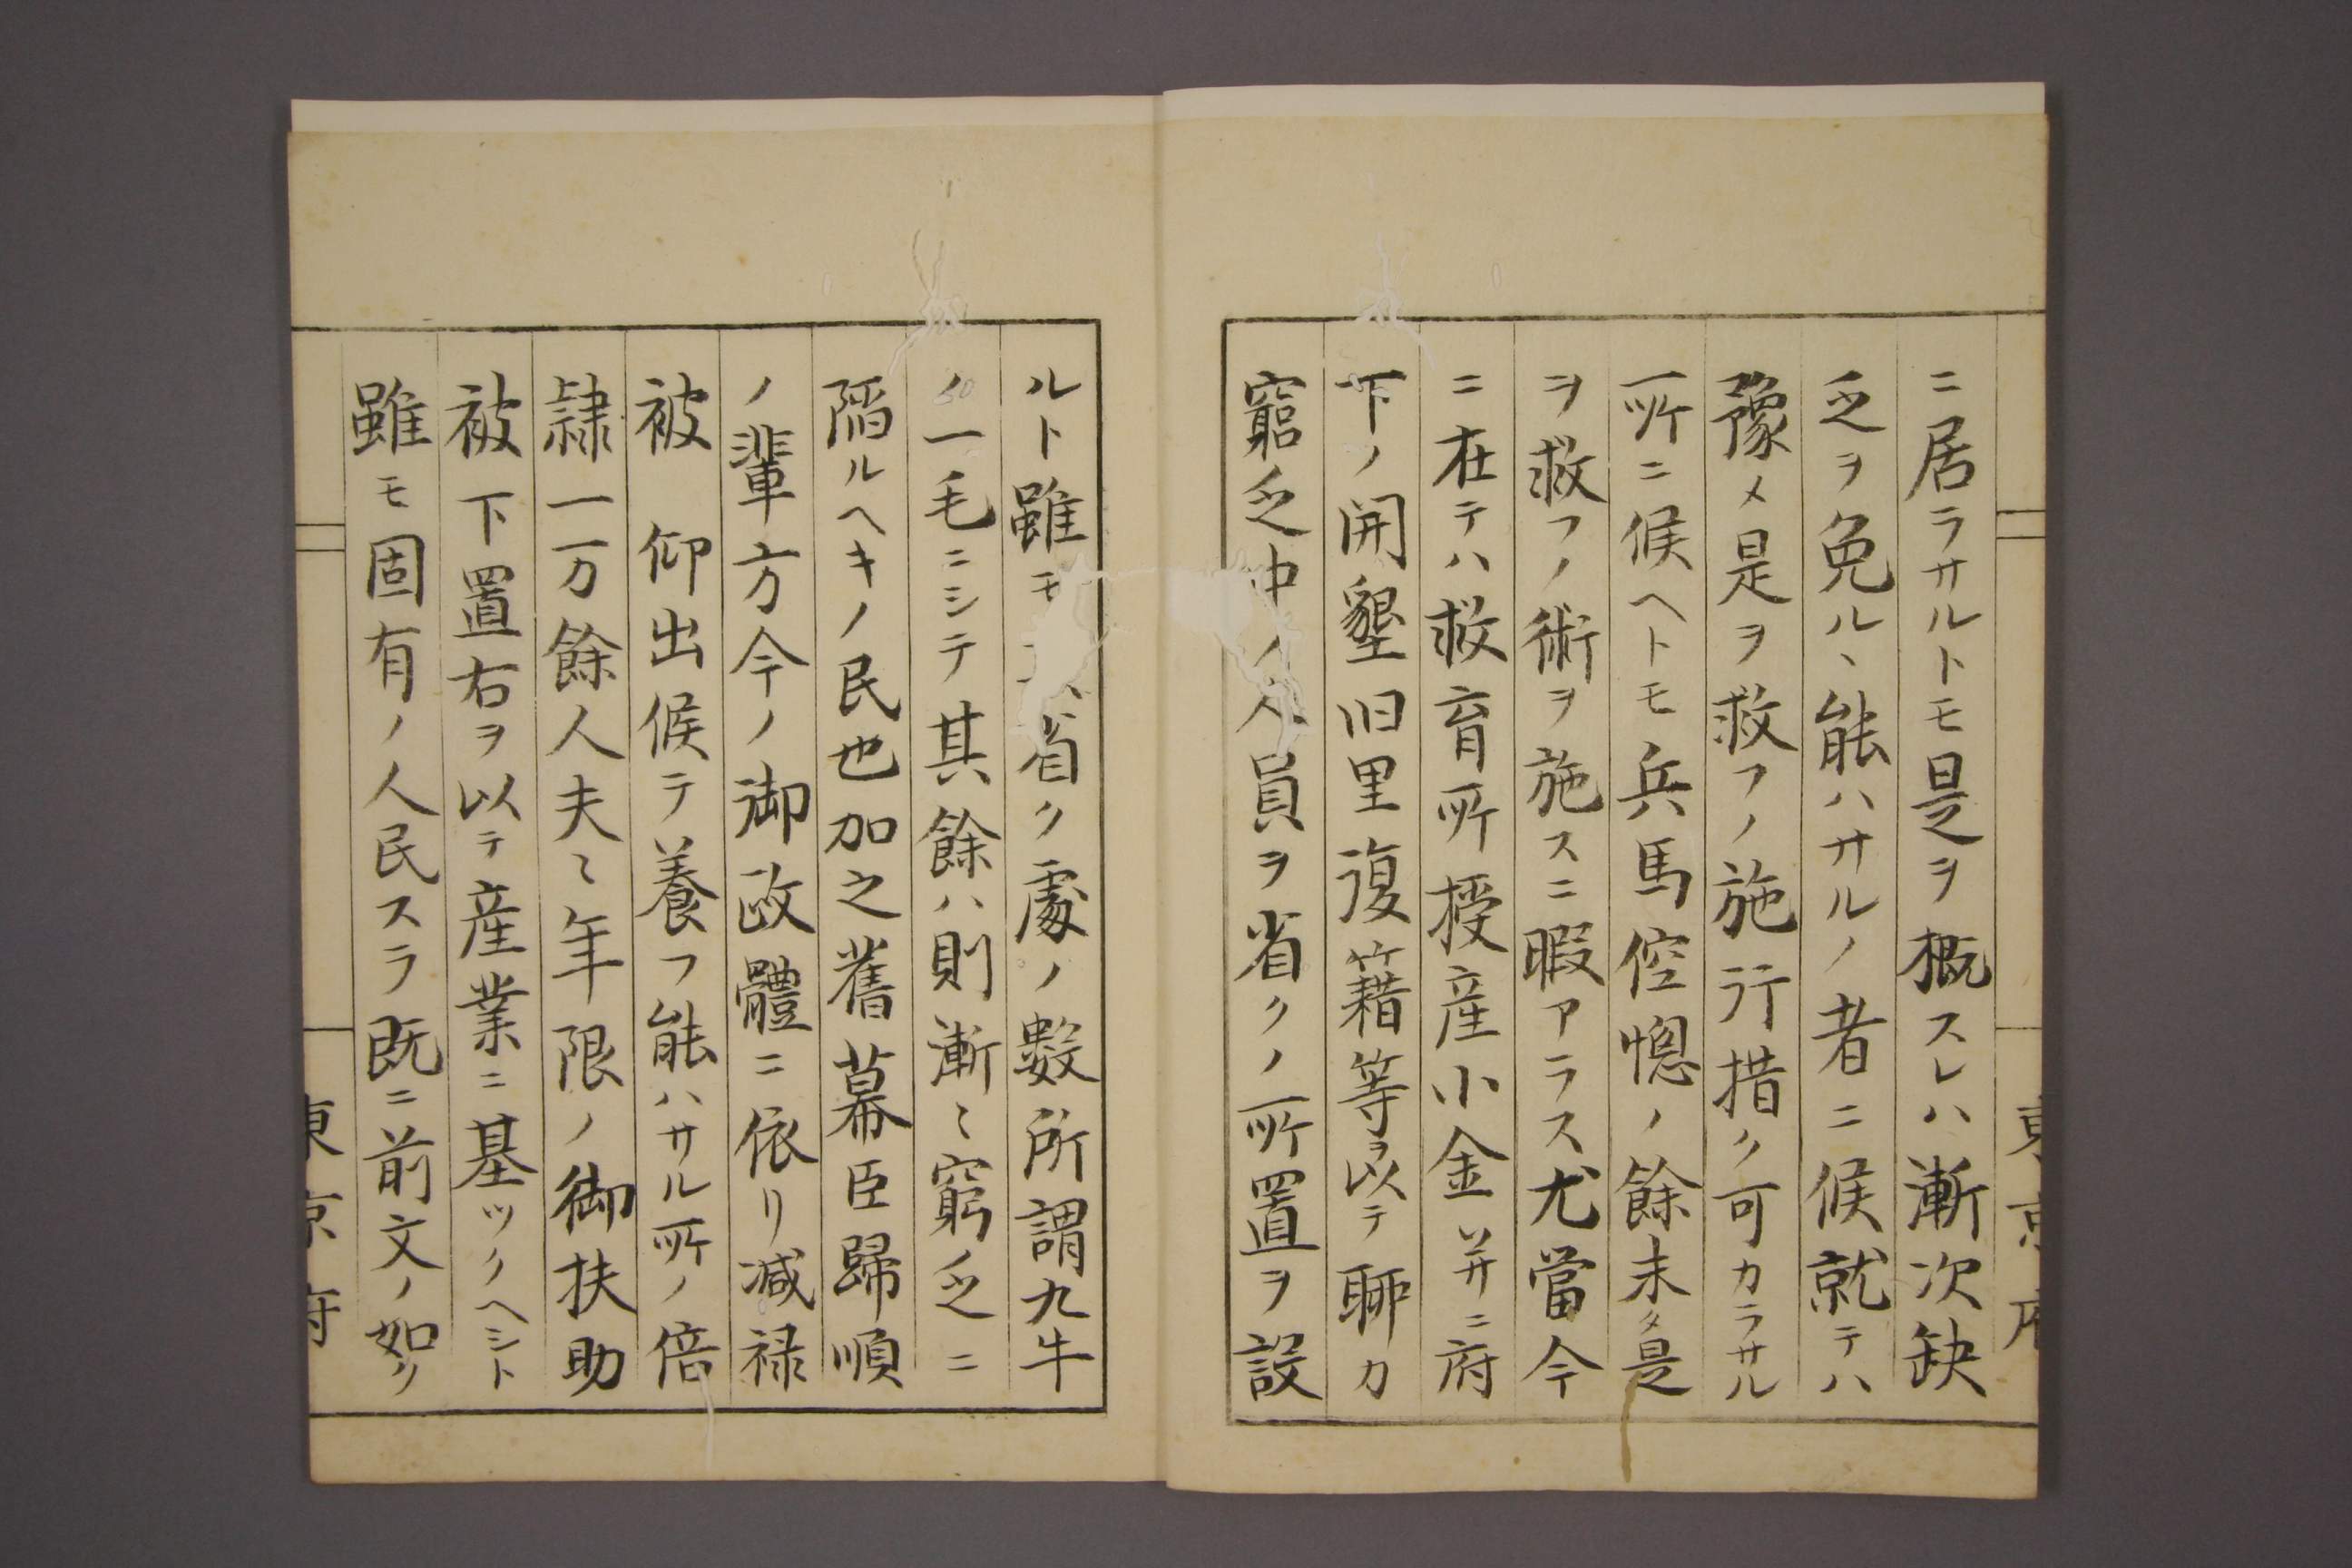 ニ居ラサルトモ是ヲ概スレハ漸次缺
乏ヲ免ルヽ能ハサルノ者ニ候就テハ
豫メ是ヲ救フノ施行措ク可カラサル
所ニ候ヘトモ兵馬倥偬ノ餘未タ是
ヲ救フノ術ヲ施スニ暇アラス尤當今
ニ在テハ救育所授産小金并ニ府
下ノ開墾旧里復籍等ヲ以テ聊カ
窮乏中ノ人員ヲ省クノ所置ヲ設
東京府
ルト雖モ省ク處ノ數所謂九牛
ノ一毛ニシテ其餘ハ則漸〻窮乏ニ
陷ルヘキノ民也加之舊幕臣歸順
ノ輩方今ノ御政體ニ依リ減禄
被 仰出候テ養フ能ハサル所ノ倍
隷一万餘人夫〻年限ノ御扶助
被下置右ヲ以テ産業ニ基ツクヘシト
雖モ固有ノ人民スラ既ニ前文ノ如ク
東京府